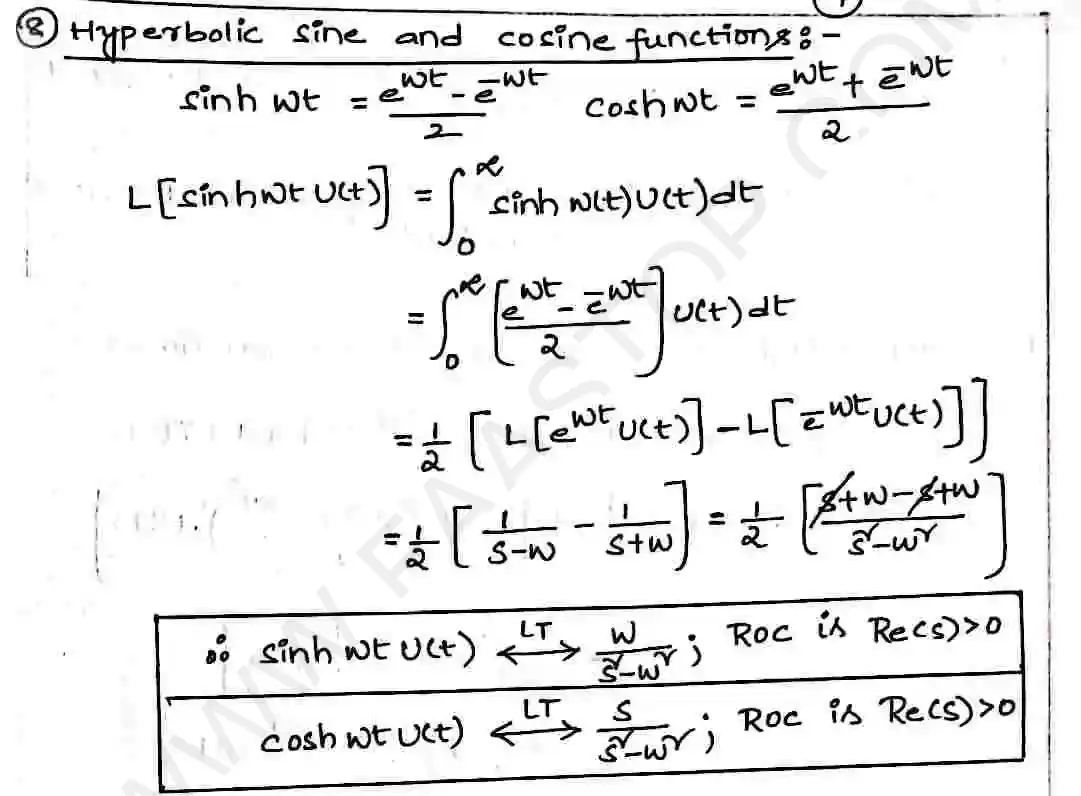 ⑧ Hyperbolic sine and cosine functions:-
sinh wt = (e^wt - e^-wt)/2    cosh wt = (e^wt + e^-wt)/2
L[sinh wt U(t)] = ∫₀^∞ sinh w(t) U(t) dt
= ∫₀^∞ [(e^wt - e^-wt)/2] U(t) dt
= 1/2 [L[e^wt U(t)] - L[e^-wt U(t)]]
= 1/2 [1/(s-w) - 1/(s+w)] = 1/2 [(s+w-s+w)/(s²-w²)]
∴ sinh wt U(t) ⟷^LT w/(s²-w²); Roc is Re(s)>0
cosh wt U(t) ⟷^LT s/(s²-w²); Roc is Re(s)>0
WWW.FAASTOP.COM